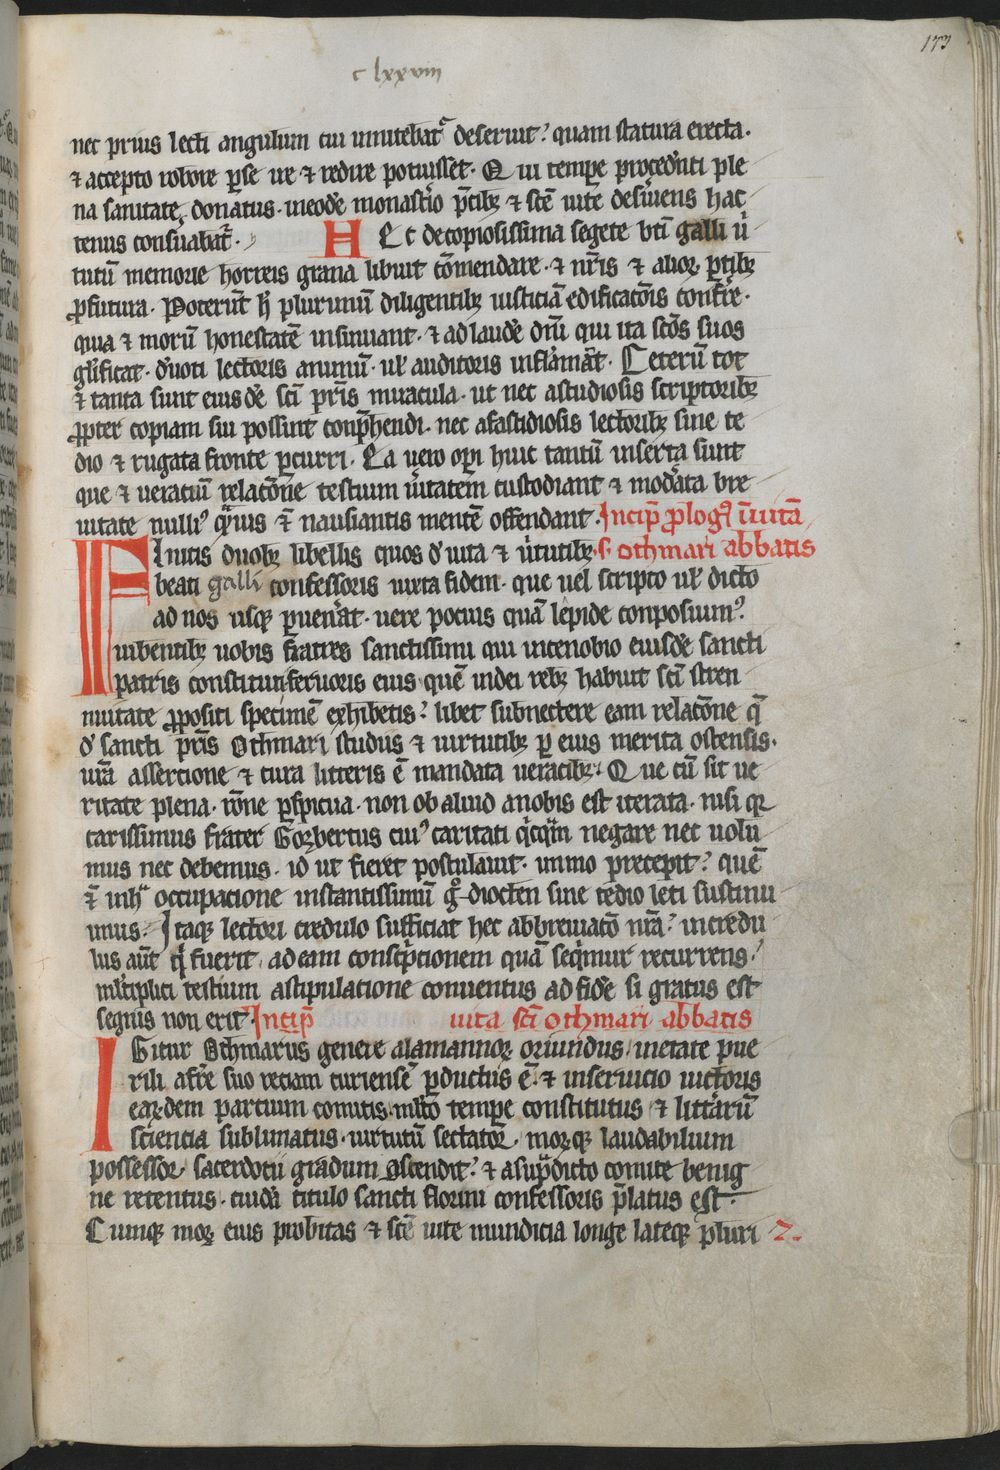 c lxxviii
173
nec prius lecti angulum cui innitebat᷑ deseruit? quam statura erecta.
⁊ accepto robore ꝑse ire ⁊ redire potuisset. Qui tempe procedn̄ti ple
na sanitate donatus. ineodē monastio p̄tibꝫ ⁊ sc̄e uite deſuiens hac
tenus conſuabat᷑. HEc decopiosissima segete bt̄i galli ui
tutū memorie horreis grana libuit cōmendare. ⁊ nr̄is ⁊ alioꝝ ꝑtibꝫ
ꝓfutura. Poterūt h̄ plurimū diligentibꝫ iusticiā edificatōis confre.
quia ⁊ morū honestatē insinuant. ⁊ ad laudē dn̄i qui ita sc̄os suos
gl̄ificat. duoti lectoris animū. ul̓ auditoris inflāmāt. Ceterū tot
⁊ tanta sunt eiusdē sc̄i pr̄is miracula. ut nec astudiosis scriptoribꝫ
ꝓpter copiam sui possint conp̄hendi. nec afastidiosis lectoribꝫ sine te
dio ⁊ rugata fronte ꝑcurri. Ea uero oꝑi huic tantū inserta sunt
que ⁊ ueraciū relatōne testium ūitatem custodiant ⁊ modāta bre
uitate nulliꝰ quius t̄ nausiantis mentē offendant. Incip̄ ꝓlogꝰ ī uitā
Initis duobꝫ libellis quos d̓ uita ⁊ ūtutibꝫ. s. othmari abbatis
beati galli confessoris iuxta fidem. que uel scripto ul̓ dicto
ad nos usqꝫ ꝑuenāt. uere pocius quā lepide conposuimꝰ
iubentibꝫ uobis frātres sanctissimi qui incenobio eiusdē sancti
patris constituti feruoris eius quē indei rebꝫ habuit sc̄i stren
nuitate ꝓpositi specimē exhibetis? libet subnectere eam relatōne q̄
d̓ sancti pr̄is Othmari studiis ⁊ uirtutibꝫ ꝑ eius merita ostensis.
ur̄a assercione ⁊ cura litteris ē mandata ueracibꝫ. Que cū sit ue
ritate plena. rōne ꝑspicua. non ob aliud anobis est iterata. nisi qꝛ
carissimus frater Gozbertus cuiꝰ caritati qicqm̄ negare nec uolu
mus nec debemus. id ut fieret postulauit. immo precepit? quē
t̄ inhac occupacione instantissimū gͦdiocten sine tedio leti sustinu
imus. Itaqꝫ lectori credulo sufficiat hec abbreuiatō nr̄a? incredu
lus aūt qi fuerit. ad eam conscp̄tionem quā seqimur recurrens?
ml̓tiplici testium astipulatione conuentus ad fidē si gratus est
segnis non erit. Incip̄ uita sc̄i othmari abbatis
IGitur Othmarus genere alamannoꝝ oriundus. inetate pue
rili afr̄e suo reciam curiensē ꝑductus ē. ⁊ inseruicio uictoris
earꝰdem parcium comitis. ml̓to tempe constitutus ⁊ litterarū
sciencia sublimatus. uirtutū sectatoꝛ. moꝝqꝫ laudabilium
possessor sacerdocii gradum ascendit? ⁊ asup̄dicto comite benig
ne retentus. cuidā titulo sancti florini confessoris p̄latus est.
Cumqꝫ moꝝ eius probitas ⁊ sc̄e uite mundicia longe lateqꝫ pluri